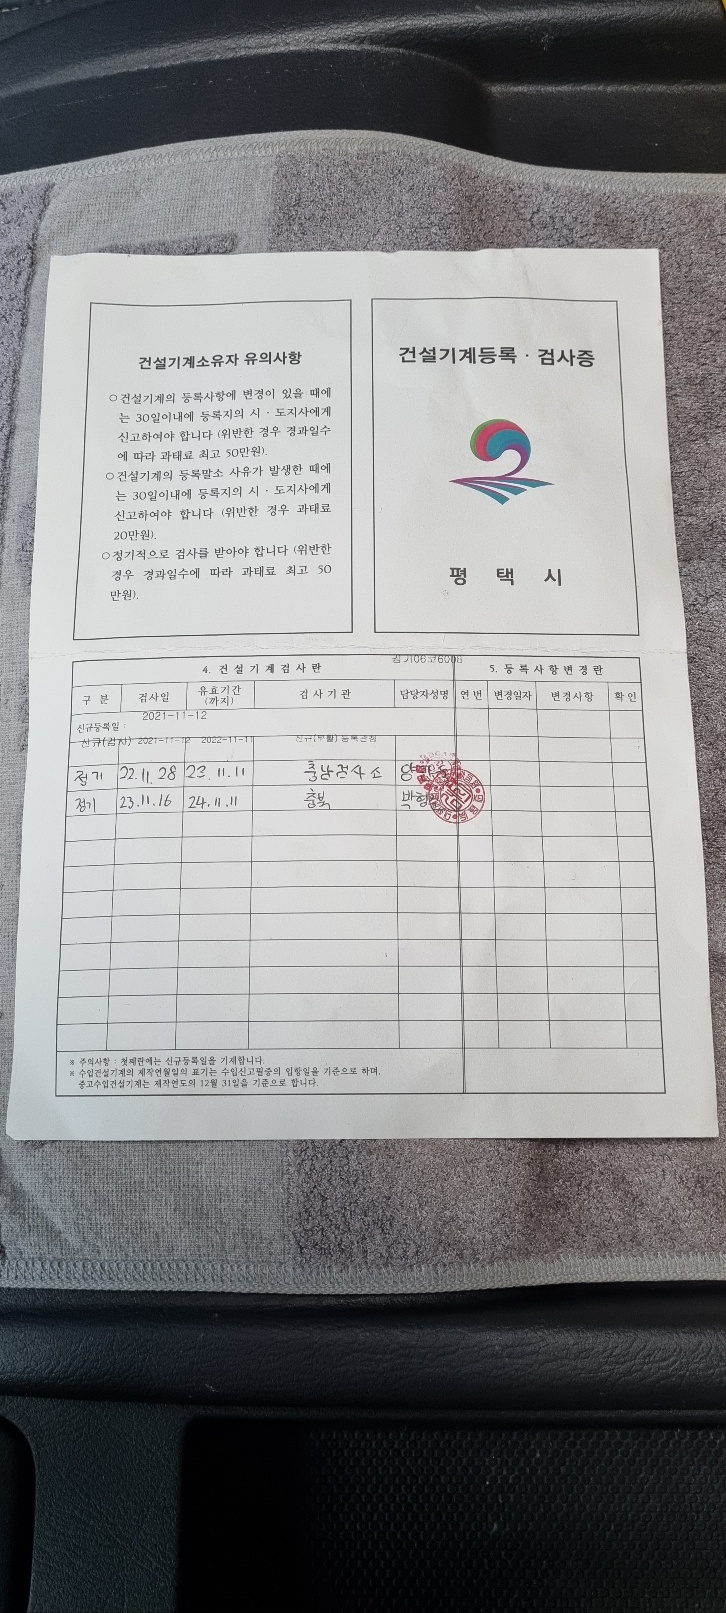 건설기계소유자 유의사항
○건설기계의 등록사항에 변경이 있을 때에
는 30일이내에 등록지의 시 · 도지사에게
신고하여야 합니다 (위반한 경우 경과일수
에 따라 과태료 최고 50만원).
○건설기계의 등록말소 사유가 발생한 때에
는 30일이내에 등록지의 시 · 도지사에게
신고하여야 합니다 (위반한 경우 과태료
20만원).
○정기적으로 검사를 받아야 합니다 (위반한
경우 경과일수에 따라 과태료 최고 50
만원).
건설기계등록 · 검사증
평 택 시
경기06고6008
4. 건 설 기 계 검 사 란
5. 등 록 사 항 변 경 란
구 분 검사일 유효기간 (까지) 검 사 기 관 담당자성명 연 번 변경일자 변경사항 확 인
신규등록일 : 2021-11-12
신규(검사) 2021-11-12 2022-11-11 신규(부활) 등록관청
정기 22.11.28 23.11.11 충남검사소
정기 23.11.16 24.11.11 충북
※ 주의사항 : 첫째란에는 신규등록일을 기재합니다.
※ 수입건설기계의 제작연월일의 표기는 수입신고필증의 입항일을 기준으로 하며,
중고수입건설기계는 제작연도의 12월 31일을 기준으로 합니다.